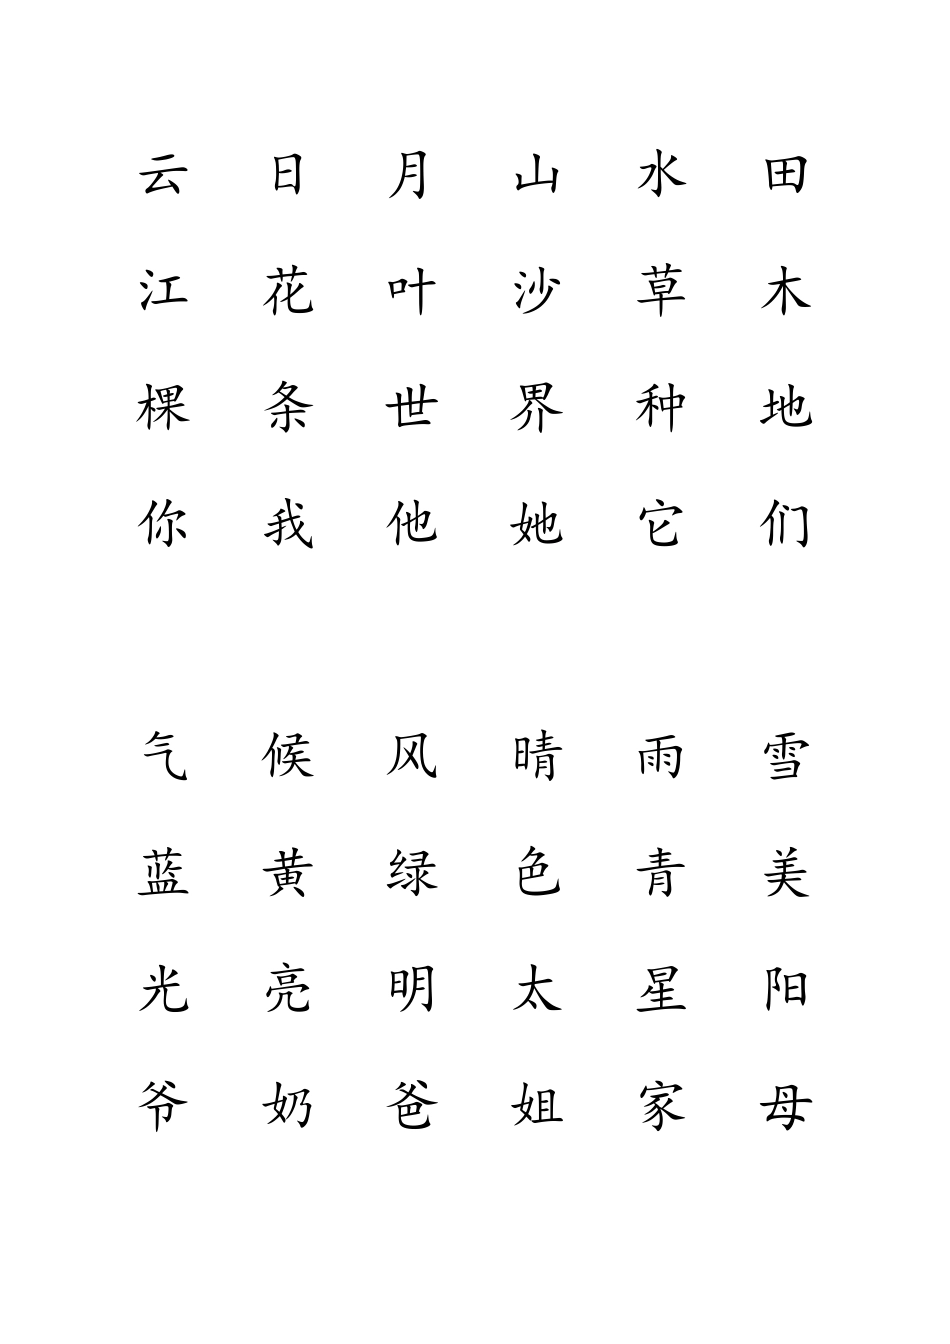 云 日 月 山 水 田
江 花 叶 沙 草 木
棵 条 世 界 种 地
你 我 他 她 它 们
气 候 风 晴 雨 雪
蓝 黄 绿 色 青 美
光 亮 明 太 星 阳
爷 奶 爸 姐 家 母